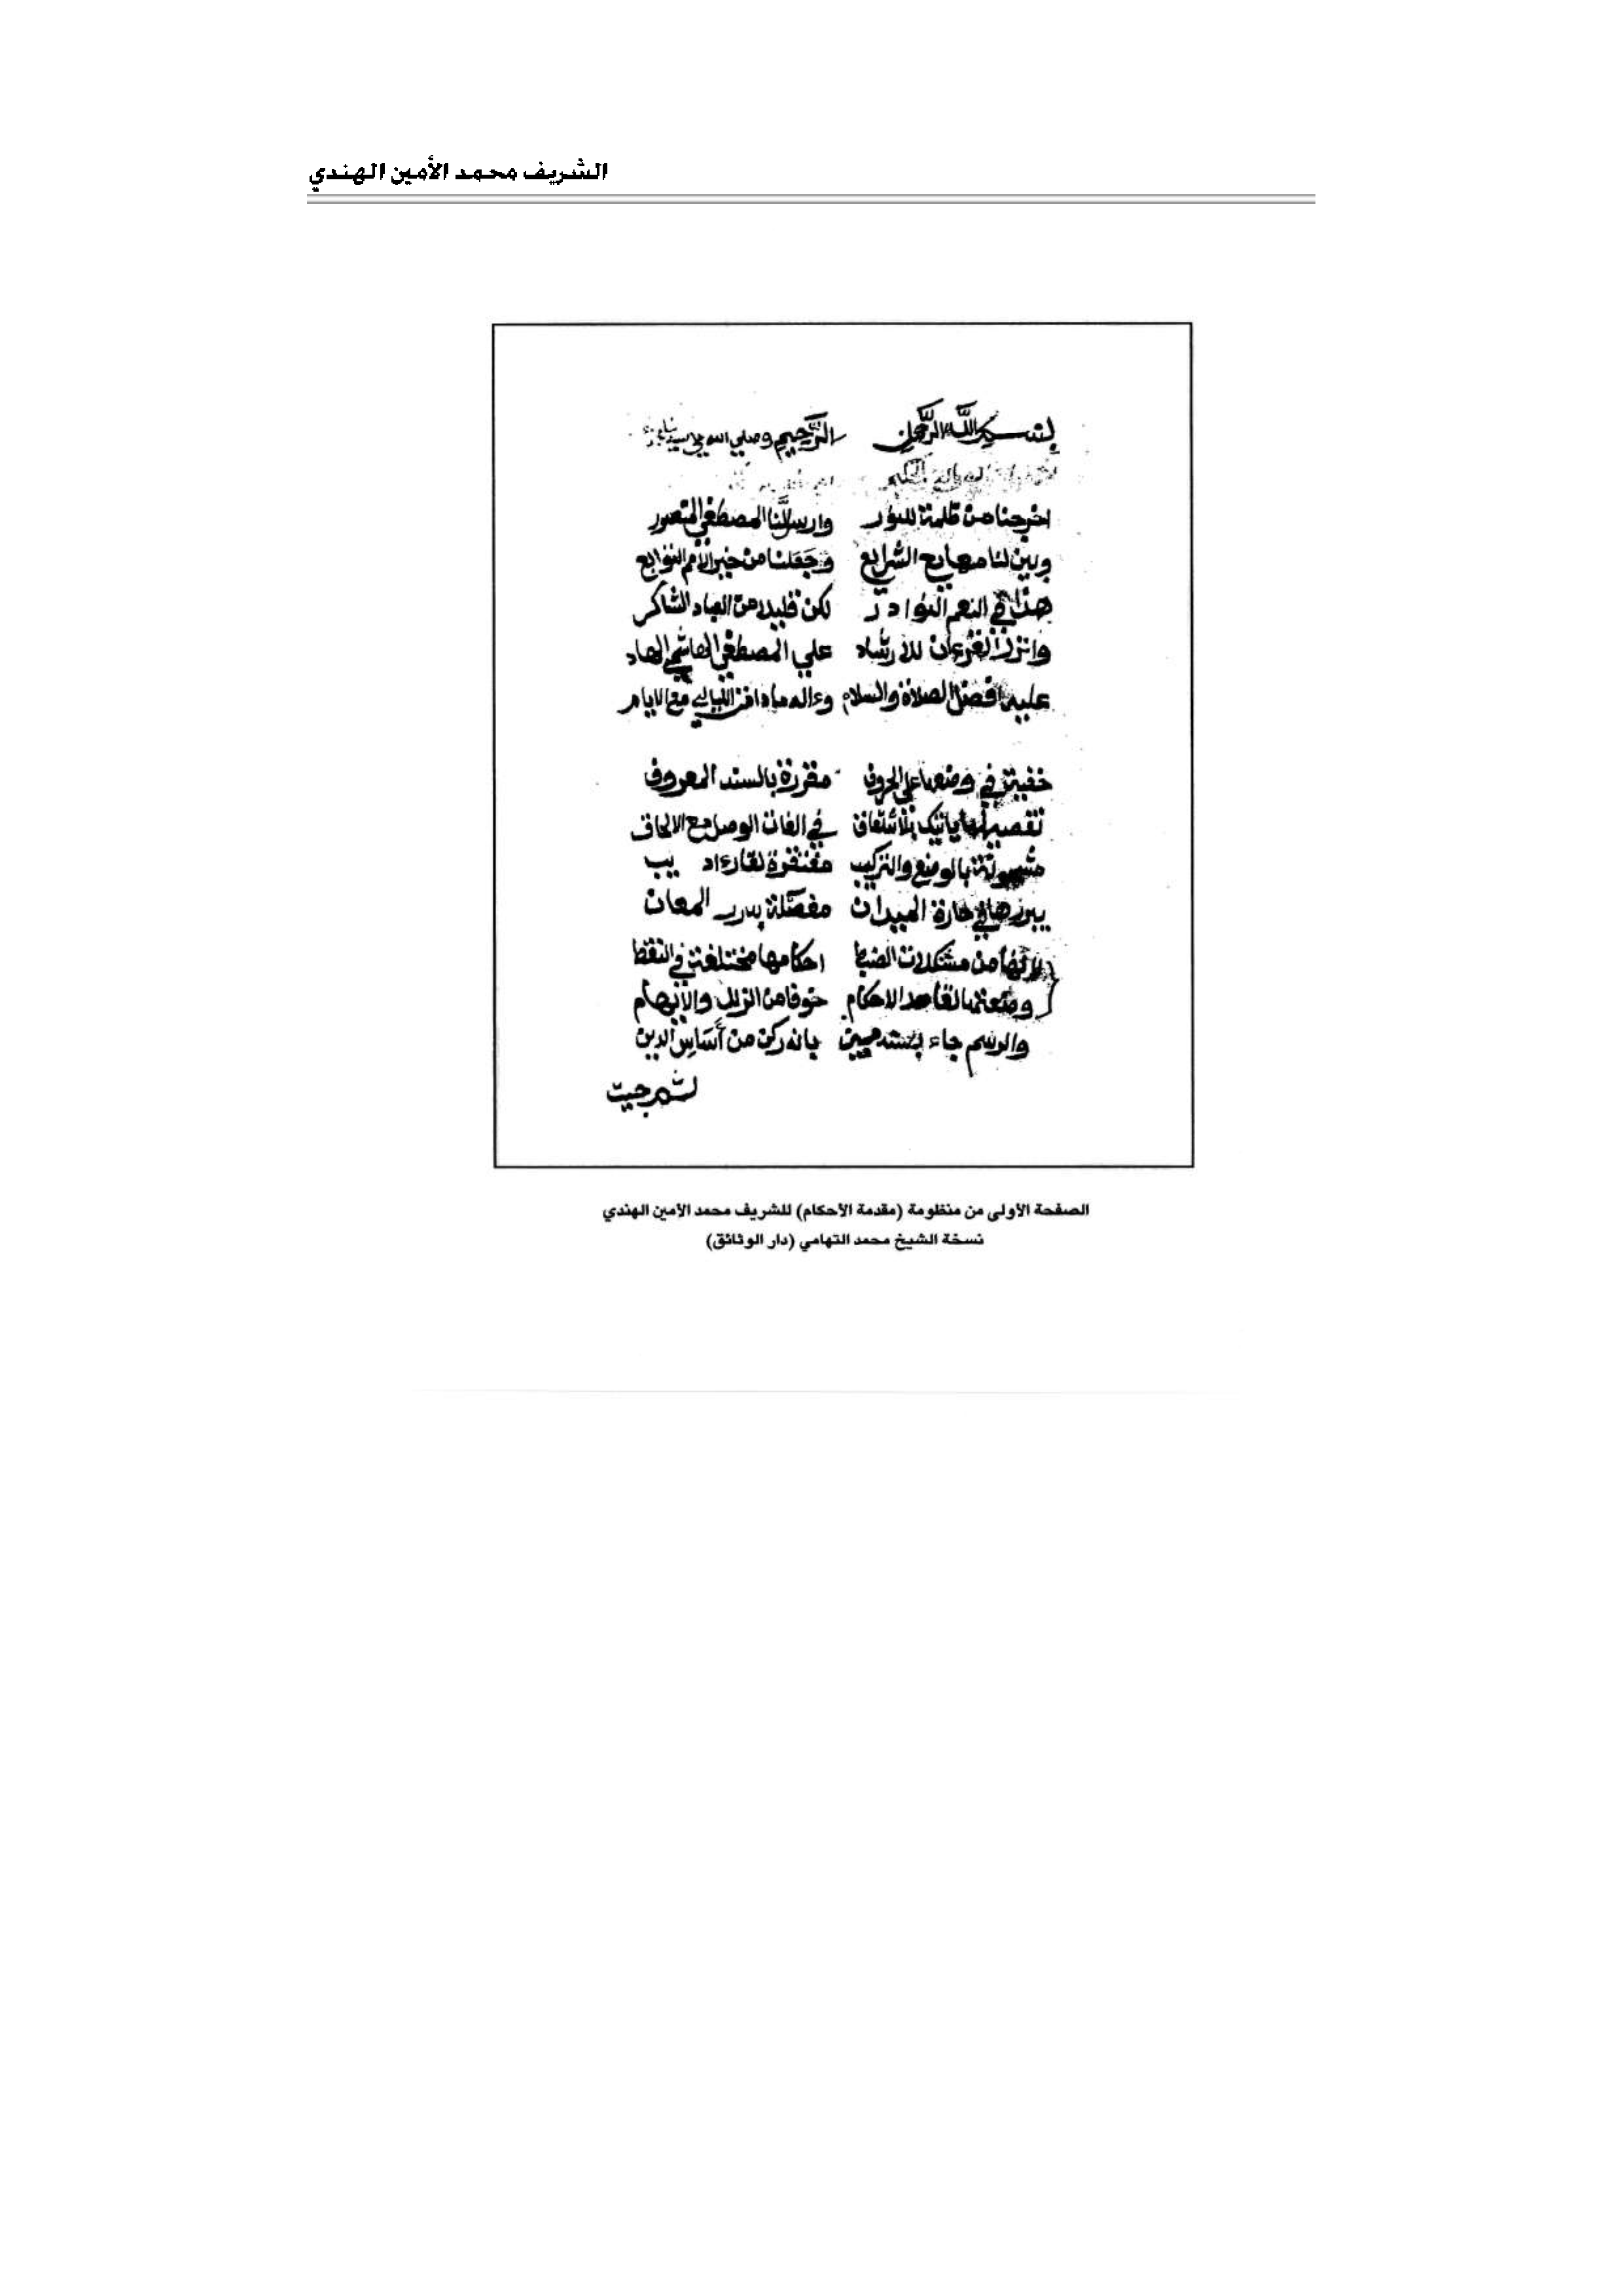 الشريف محمد الأمين الهندي
بسم الله الرحمن الرحيم وصلي الله علي سيدنا
اخرجنا من ظلمة للنور وارسل لنا المصطفي المنصور
وبين لنا معالم الشرايع وجعلنا من خير الأمم التوابع
هذا في النعم النوادر لكن قليلا من العباد الشاكر
وانزل القرءان للارشاد علي المصطفي الهاشمي الهاد
عليه افضل الصلاة والسلام وءاله ما دامت الليالي مع الايام
خفيت في وضعها علي الحروف مقررة بالسند المعروف
تفصيلها ياتيك في الفات الوصل مع الالحاق
بالوضع والتركيب مفتقرة لقارء اديب
يبرزها في حارة الميدان مفصلة بدرر المعان
لانها من مشكلات الضبط احكامها مختلفة في النقط
وضعتها لقاصد الاحكام خوفا من الزلل والابهام
والرسم جاء بانه ركن من أساس الدين
الصفحة الأولى من منظومة (مقدمة الأحكام) للشريف محمد الأمين الهندي
نسخة الشيخ محمد التهامي (دار الوثائق)